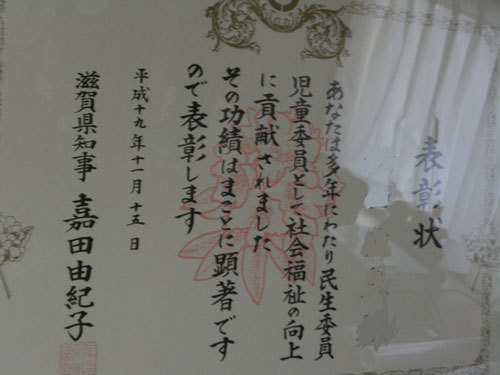 表彰状
あなたは多年にわたり民生委員
児童委員として社会福祉の向上
に貢献されました
その功績はまことに顕著です
ので表彰します
平成十九年十一月十五日
滋賀県知事 嘉田由紀子